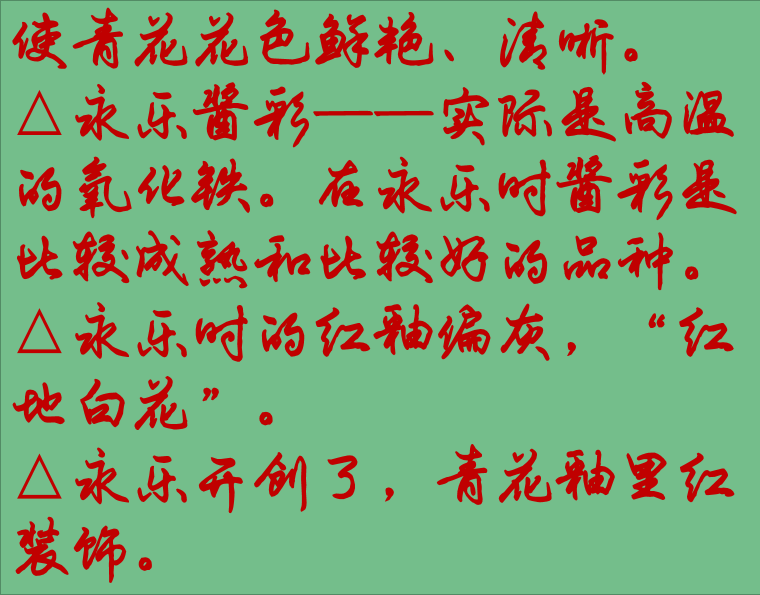 使青花花色鲜艳、清晰。
△永乐酱彩——实际是高温
的氧化铁。在永乐时酱彩是
比较成熟和比较好的品种。
△永乐时的红釉偏灰，“红
地白花”。
△永乐开创了，青花釉里红
装饰。